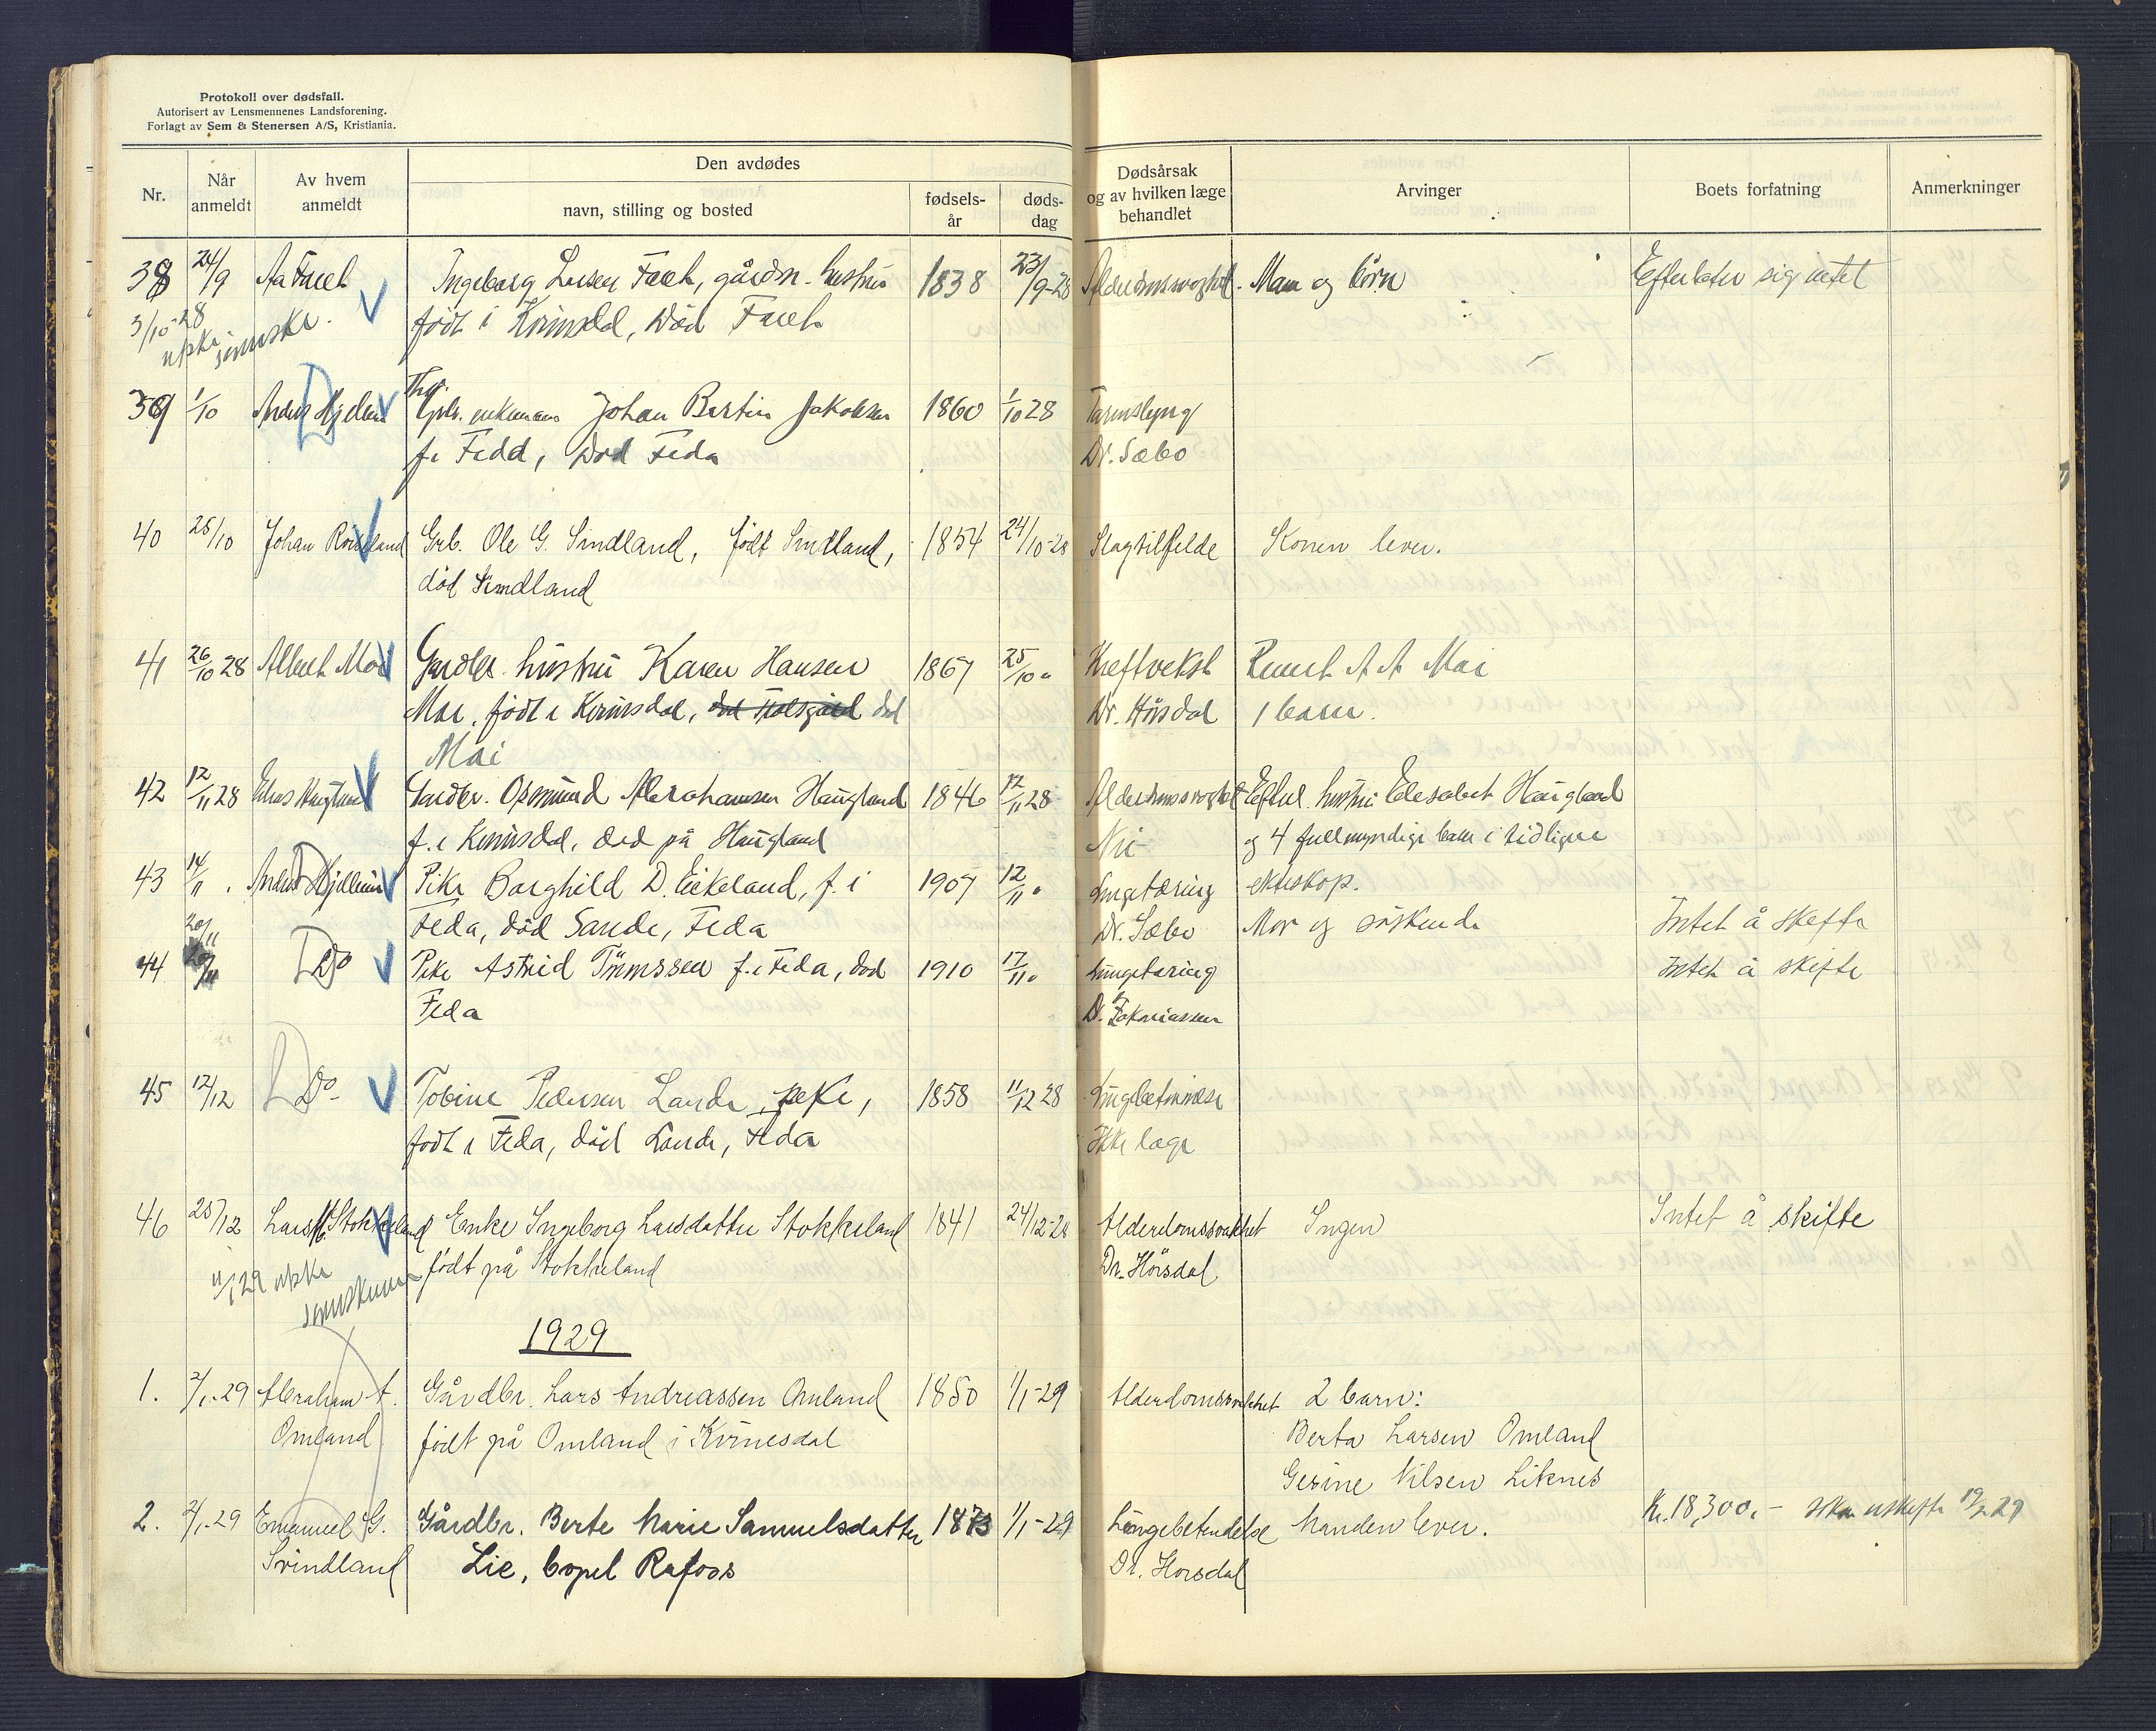 Protokoll over dødsfall.
Autorisert av Lensmennenes Landsforening.
Forlagt av Sem & Stenersen A/S, Kristiania.
Nr.
Når anmeldt
Av hvem anmeldt
Den avdødes
navn, stilling og bosted
fødsels-år
døds-dag
Dødsårsak og av hvilken læge behandlet
Arvinger
Boets forfatning
Anmerkninger
38 24/9 Aa Faret Ingeborg Larsen Faret, gårdm. hustru 1838 23/9-28 Alderdomssvaghet. Man og börn Efterlater sig intet
3/10-28 født i Kvinesdal, död Faret
39 1/10 Anders Hjellum Gbr. enkemann Johan Bertin Jakobsen 1860 1/10 28 Tarmslyng
f. i Fedd, död Feda Dr. Sæbo
40 25/10 Johan Röiseland Grb. Ole G. Sindland, født Sindland, 1854 24/10-28 Slagtilfelde Konen lever.
död Sindland
41 26/10 28 Albert Moi Gardbr. hustru Karen Hansen 1867 25/10 " Kreftvekst A A Moi
Moi, född i Kvinesdal, död Dr. Hörsdal 1 barn.
Moi
42 12/11 28 Elias Haugland Gardbr. Osmund Abrahamsen Haugland 1846 12/11 28 Alderdomssvaghet Efterl. hustru Elesabet Haugland
f. i Kvinesdal, død på Haugland og 4 fullmyndige barn i tidligere
43 14/11 . Anders Hjellum Pike Borghild D. Eikeland, f. i 1907 12/11 " Lungetæring ekteskap.
Feda, död Sande, Feda Dr. Sæbo Mor og söskende Intet å skifte
44 20/11 Do Pike Astrid Tönnessen f. i Feda, død 1910 17/11 " Lungetæring Intet å skifte
Feda Dr. Zakariassen
45 12/12 Do- Tobine Pedersen Lande, pike, 1858 11/12 28 Lungebetennelse
født i Feda, död Lande, Feda Ikke læge
46 25/12 Lars Stokkeland Enke Ingeborg Larsdatter Stokkeland 1841 24/12-28 Alderdomssvakhet Ingen Intet å skifte
født på Stokkeland Dr. Hörsdal
1929
1. 2/1-29 Abraham A. Omland Gårdbr. Lars Andreassen Omland 1850 1/1-29 Alderdomssvakhet 2 barn:
født på Omland i Kvinesdal Berta Larsen Omland
Gesine Nilsen Liknes
2. 2/1-29 Emanuel G. Svindland Gårdbr. Berte Marie Samuelsdatter 1873 1/1-29 Lungebetendelse Manden lever. Kr. 18,300.- uskifte 19/2 29
Lie, bopel Rafoss Dr. Horsdal